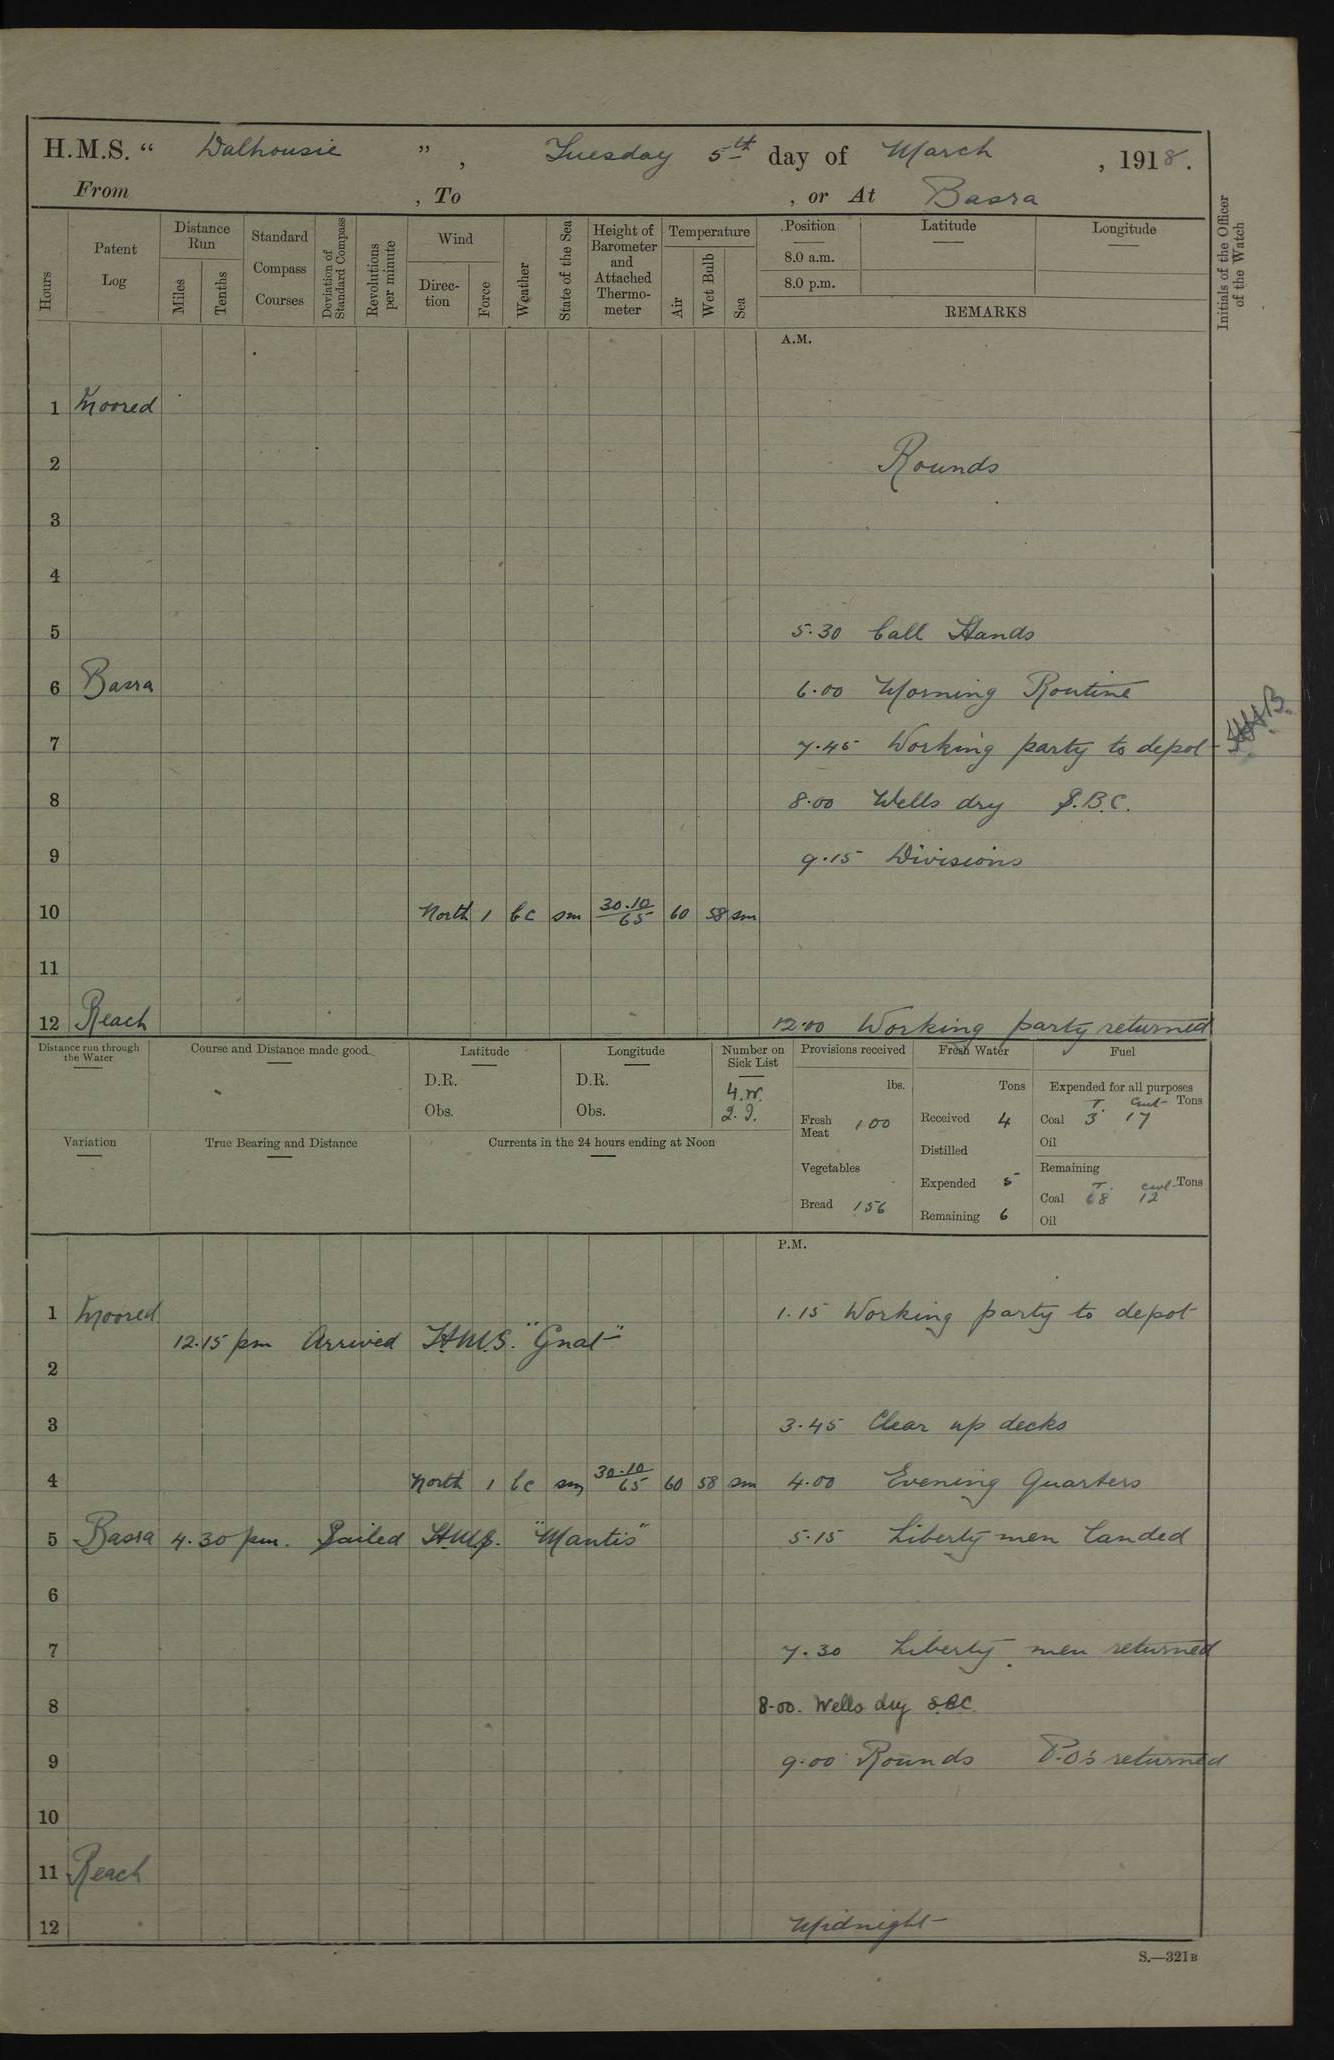 H.M.S. “ Dalhousie ” , Tuesday 5th day of March , 1918.
From , To , or At Basra
Hours
Patent Log
Distance Run
Miles
Tenths
Standard Compass Courses
Deviation of Standard Compass
Revolutions per minute
Wind
Direction
Force
Weather
State of the Sea
Height of Barometer and Attached Thermometer
Temperature
Air
Wet Bulb
Sea
Position
8.0 a.m.
8.0 p.m.
Latitude
Longitude
REMARKS
Initials of the Officer of the Watch
A.M.
1 Moored
2 Rounds
3
4
5 5.30 Call Hands
6 Basra 6.00 Morning Routine
7 7.45 Working party to depot
8 8.00 Wells dry S.B.C.
9 9.15 Divisions
10 North 1 bc sm 30.10/65 60 58 sm
11
12 Reach 12.00 Working party returned
Distance run through the Water
Course and Distance made good
Latitude
D.R.
Obs.
Longitude
D.R.
Obs.
Number on Sick List
4.W.
2.I.
Provisions received
lbs.
Fresh Meat 100
Vegetables
Bread 156
Fresh Water
Tons
Received 4
Distilled
Expended 5
Remaining 6
Fuel
Expended for all purposes
T. cwt Tons
Coal 3 17
Oil
Remaining
T. cwt Tons
Coal 68 12
Oil
Variation
True Bearing and Distance
Currents in the 24 hours ending at Noon
P.M.
1 Moored 1.15 Working party to depot
12.15 pm Arrived H.M.S. "Gnat"
2
3 3.45 Clear up decks
4 North 1 bc sm 30.10/65 60 58 sm 4.00 Evening Quarters
5 Basra 4.30 pm. Sailed H.M.S. "Mantis" 5.15 Liberty men landed
6
7 7.30 Liberty men returned
8 8.00. Wells dry SBC
9 9.00 Rounds P.O's returned
10
11 Reach
12 Midnight
S.—321B